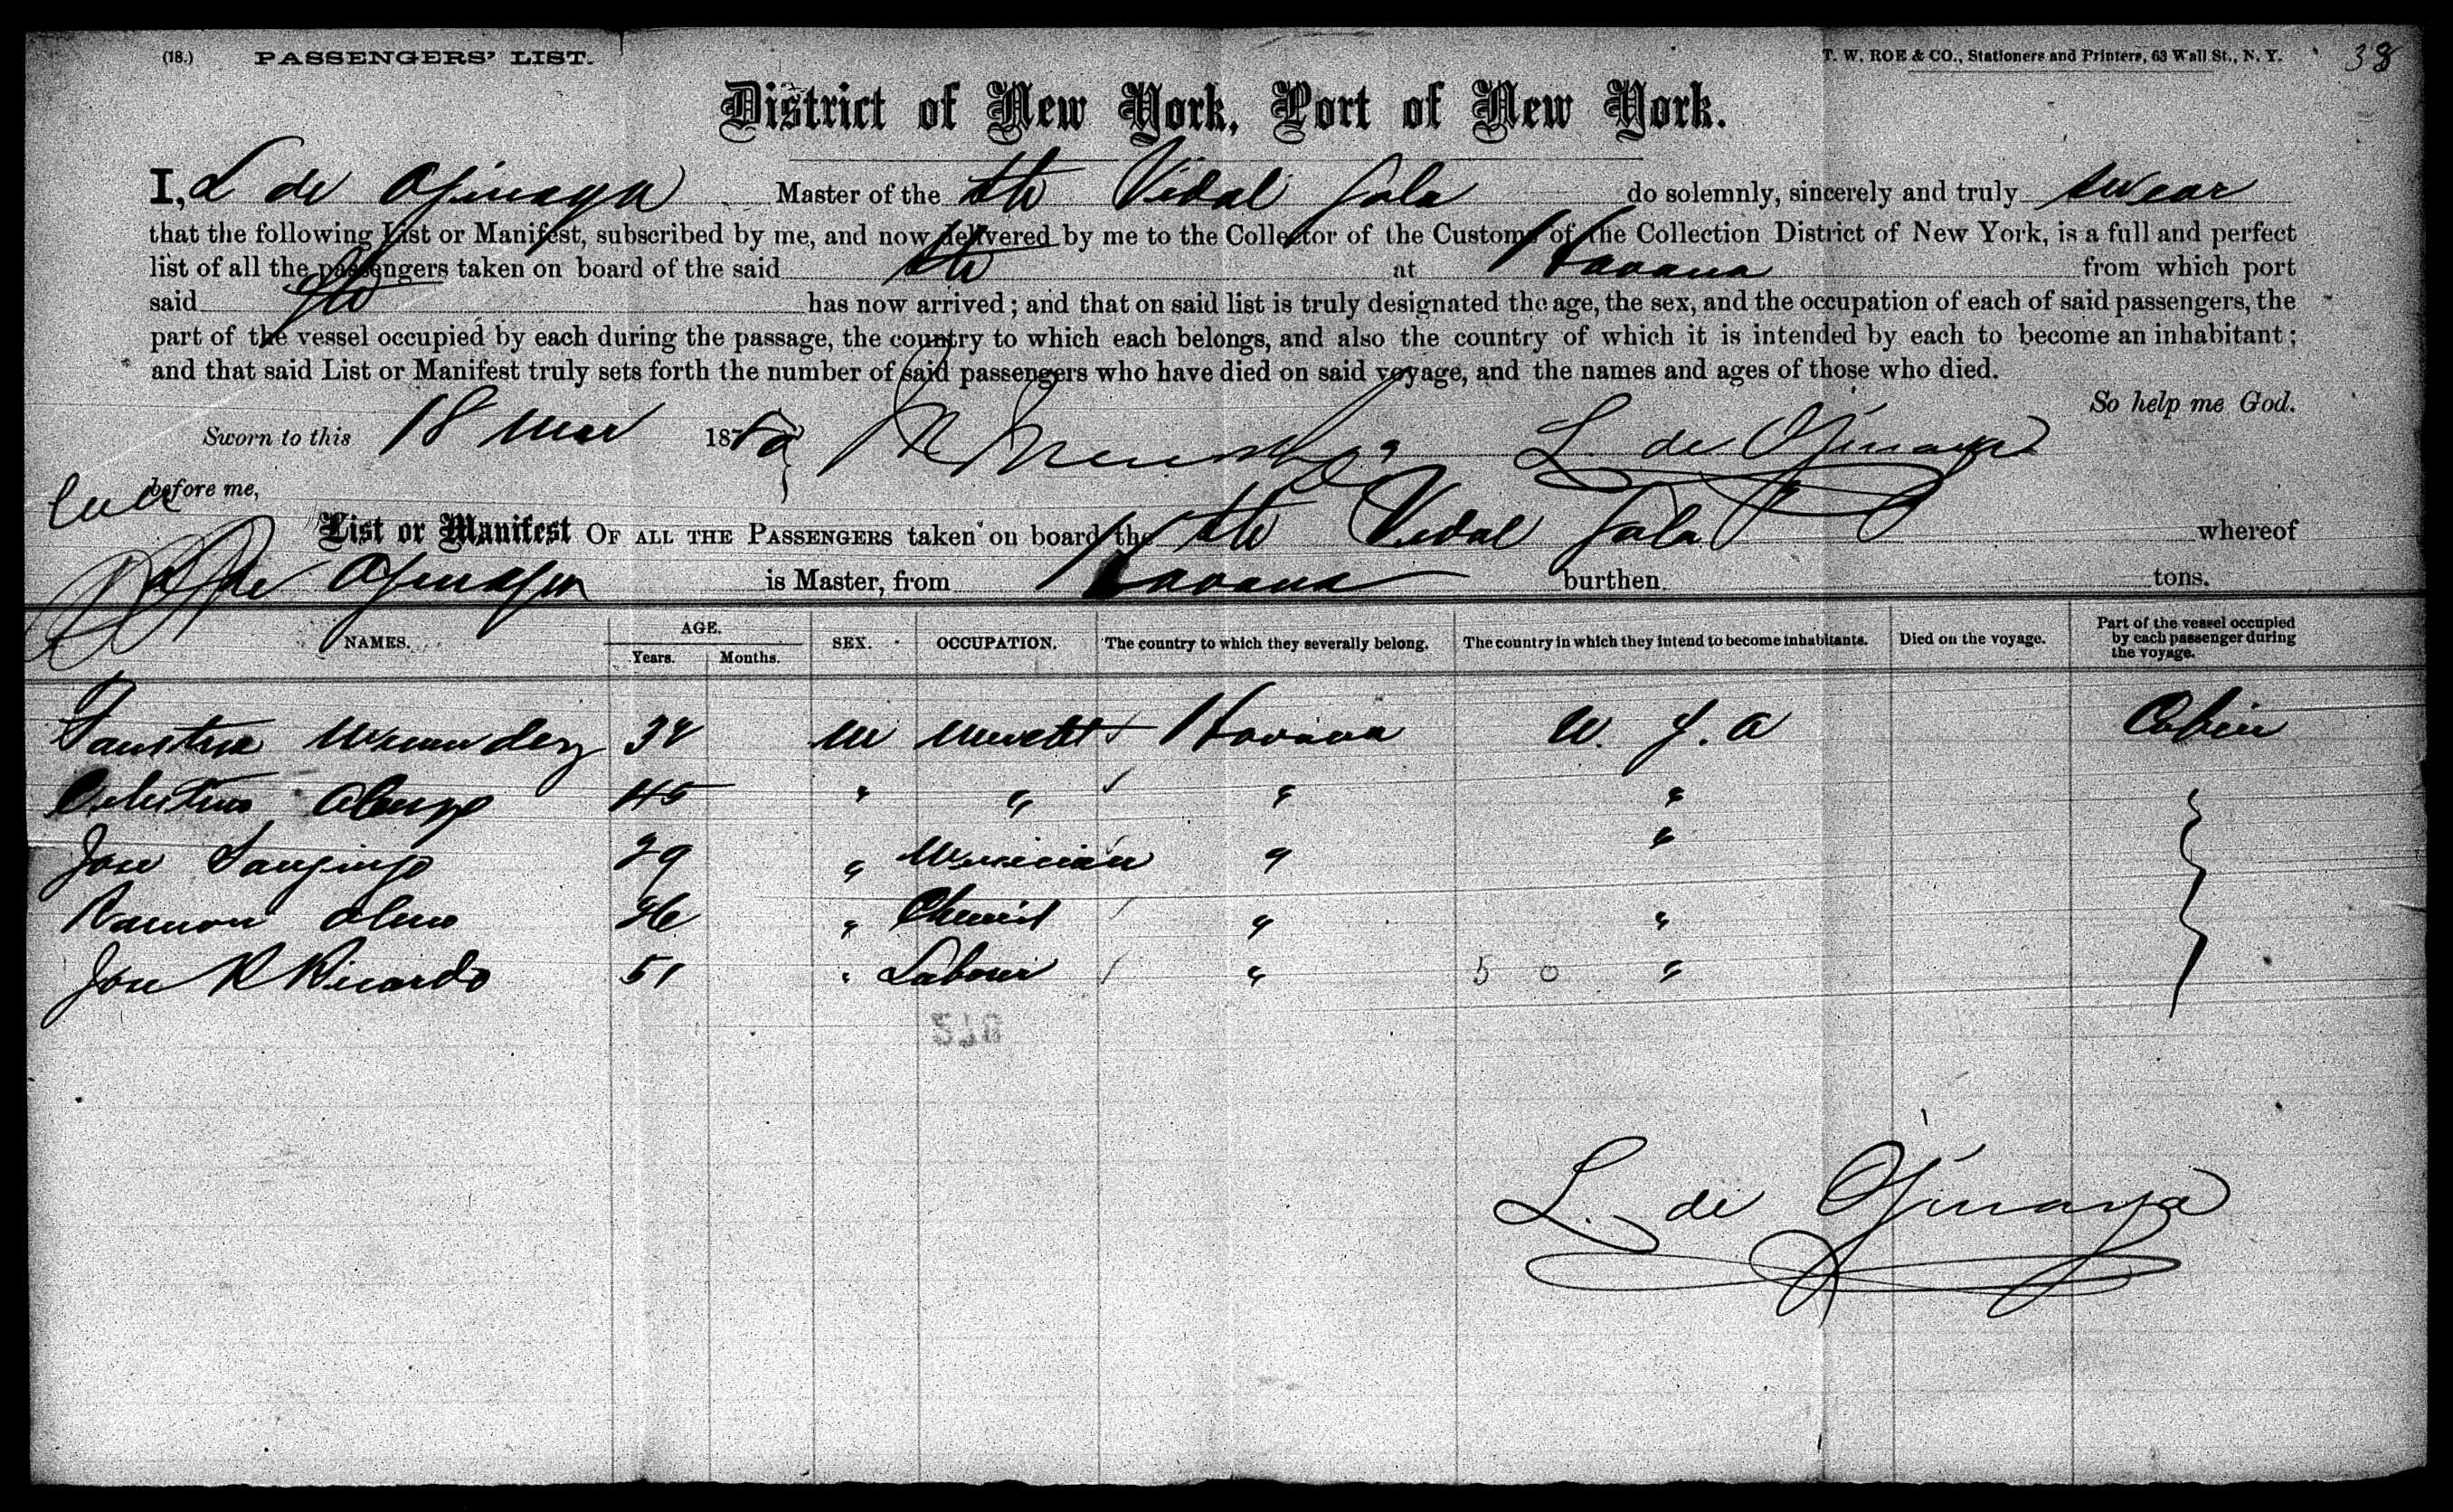 (18.) PASSENGERS' LIST. T. W. ROE & CO., Stationers and Printers, 63 Wall St., N. Y. 38
District of New York, Port of New York.
I, L de Ojinaga Master of the Str Vidal Sala do solemnly, sincerely and truly swear
that the following List or Manifest, subscribed by me, and now delivered by me to the Collector of the Customs of the Collection District of New York, is a full and perfect
list of all the passengers taken on board of the said Str at Havana from which port
said Str has now arrived; and that on said list is truly designated the age, the sex, and the occupation of each of said passengers, the
part of the vessel occupied by each during the passage, the country to which each belongs, and also the country of which it is intended by each to become an inhabitant;
and that said List or Manifest truly sets forth the number of said passengers who have died on said voyage, and the names and ages of those who died.
So help me God.
Sworn to this 18 Mar 1880 L. de Ojinaga
before me,
List or Manifest OF ALL THE PASSENGERS taken on board the Str Vidal Sala whereof
L de Ojinaga is Master, from Havana burthen tons.
NAMES. AGE. Years. Months. SEX. OCCUPATION. The country to which they severally belong. The country in which they intend to become inhabitants. Died on the voyage. Part of the vessel occupied by each passenger during the voyage.
34 M Havana U. S. A Cabin
45 " " " "
Jose 29 " Musician " "
Ramon 26 " Chemist " "
Jose R Ricardo 51 " Laborer " 5 0 "
L. de Ojinaga